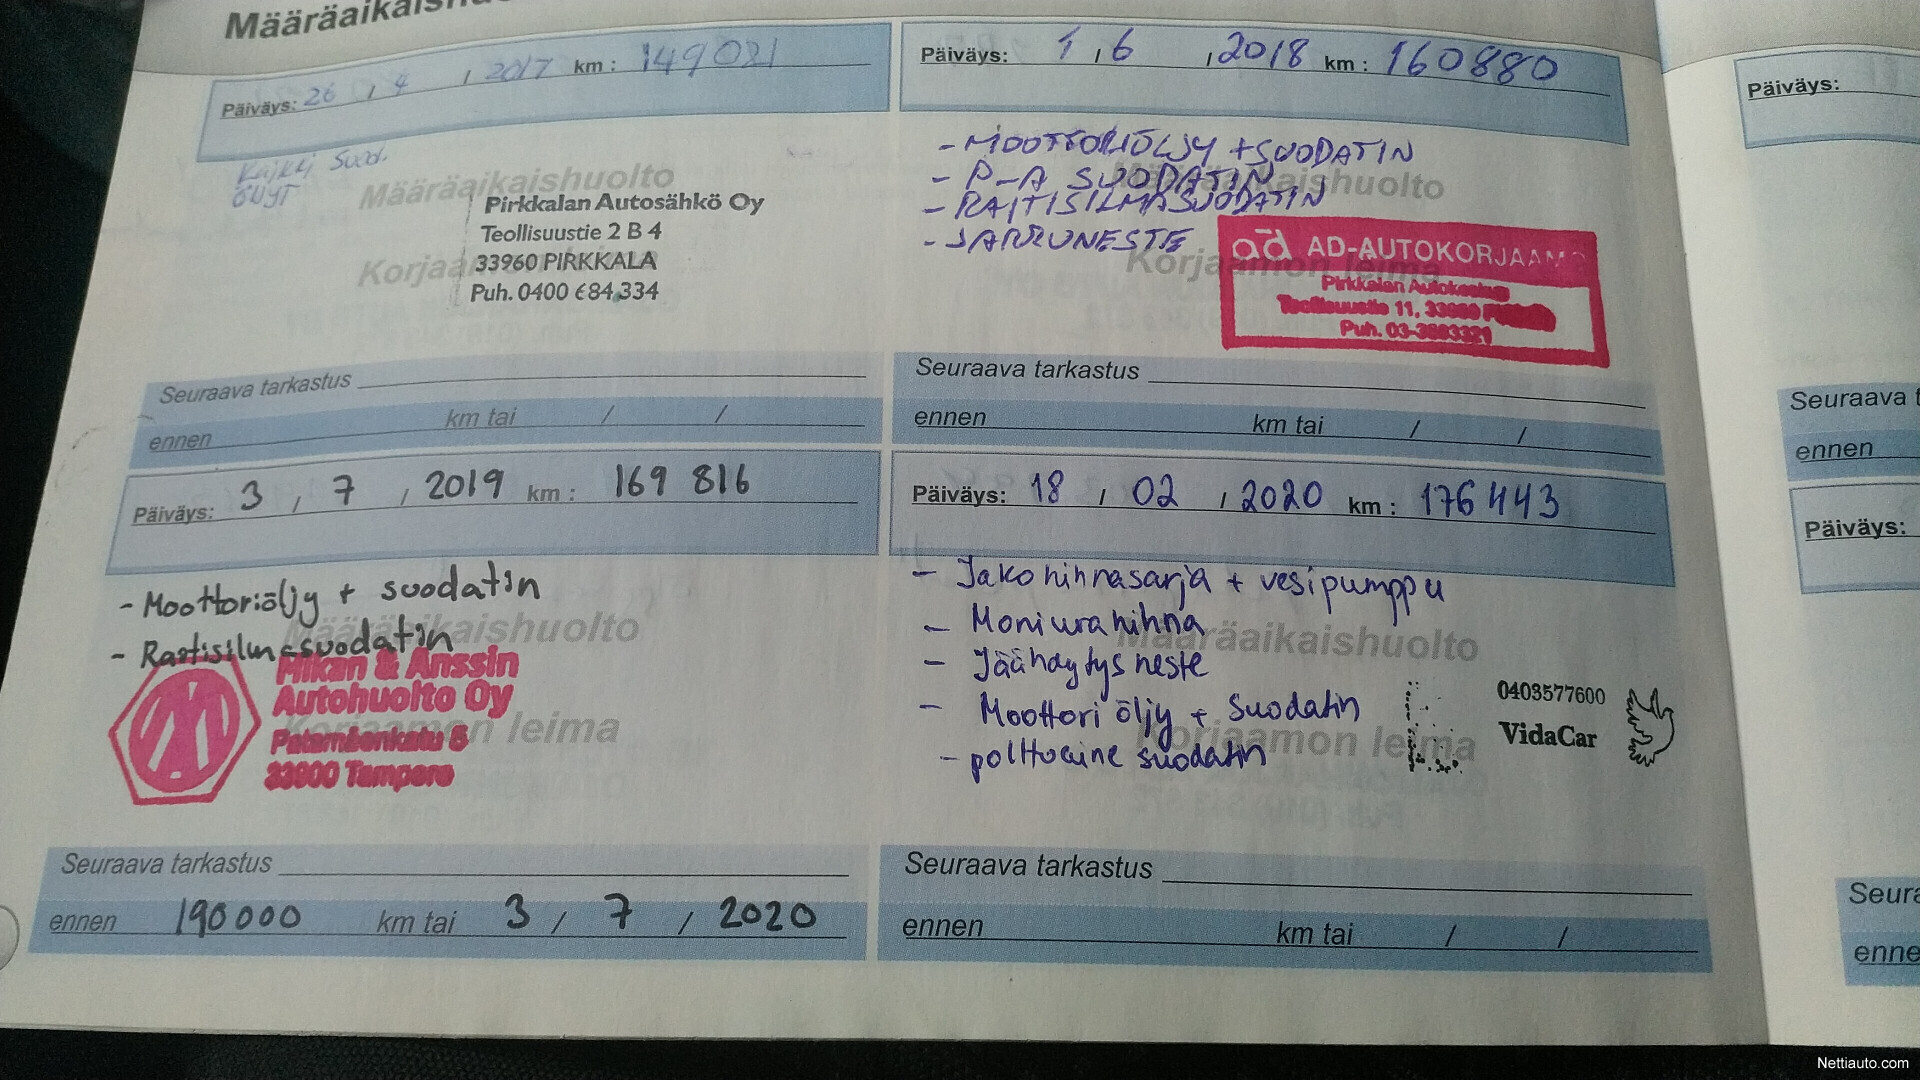 Määräaikaishuo
Päiväys: 26 , 4 , 2017 km : 149021
Kaikki suod.
öljyt
Määräaikaishuolto
Pirkkalan Autosähkö Oy
Teollisuustie 2 B 4
33960 PIRKKALA
Korjaamon leima
Puh. 0400 684 334
Seuraava tarkastus
ennen km tai / /
Päiväys: 1 , 6 , 2018 km : 160880
- MOOTTORIÖLJY + SUODATIN
- P-A SUODATIN
- RAITISILMASUODATIN
- JARRUNESTE
Määräaikaishuolto
Korjaamon leima
ad AD-AUTOKORJAAMO
Pirkkalan
Teollisuustie 11,
Puh.
Seuraava tarkastus
ennen km tai / /
Päiväys: 3 , 7 , 2019 km : 169 816
- Moottoriöljy + suodatin
- Raitisilmasuodatin
Määräaikaishuolto
Mikan & Anssin
Autohuolto Oy
Korjaamon leima
33900 Tampere
Seuraava tarkastus
ennen 190000 km tai 3 / 7 / 2020
Päiväys: 18 , 02 , 2020 km : 176443
- Jakohihnasarja + vesipumppu
- Moniurahihna
- Jäähdytys neste
- Moottori öljy + suodatin
- polttoaine suodatin
Määräaikaishuolto
Korjaamon leima
0403577600
VidaCar
Seuraava tarkastus
ennen km tai / /
Päiväys:
Seuraava t
ennen
Päiväys:
Seura
enne
Nettiauto.com